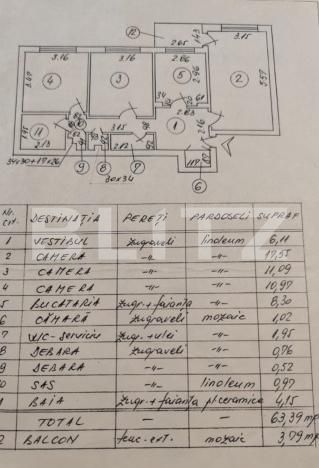 12
3.16
3.16
2.65
1.43
3.15
2.86
4
3
5
2
2.96
5.57
3.47
34
61
1
2.16
11
2.13
3.15
2.12
9
8
7
6
34x30+19x26
30x34
Nr. crt. DESTINAȚIA PEREȚI PARDOSELI SUPRAF
1 VESTIBUL zugraveli linoleum 6,11
2 CAMERA -"- -"- 17,55
3 CAMERA -"- -"- 11,09
4 CAMERA -"- -"- 10,97
5 BUCATARIA zugr.+faianta -"- 8,30
6 CĂMARĂ zugraveli mozaic 1,02
7 W/C-serviciu zugr.+ulei -"- 1,95
8 DEBARA zugraveli -"- 0,76
9 DEBARA -"- -"- 0,52
10 SAS -"- linoleum 0,97
11 BAIA zugr.+faianta pl.ceramica 4,15
TOTAL - - 63,39 mp
12 BALCON tenc.ext. mozaic 3,79 mp
BLITZ